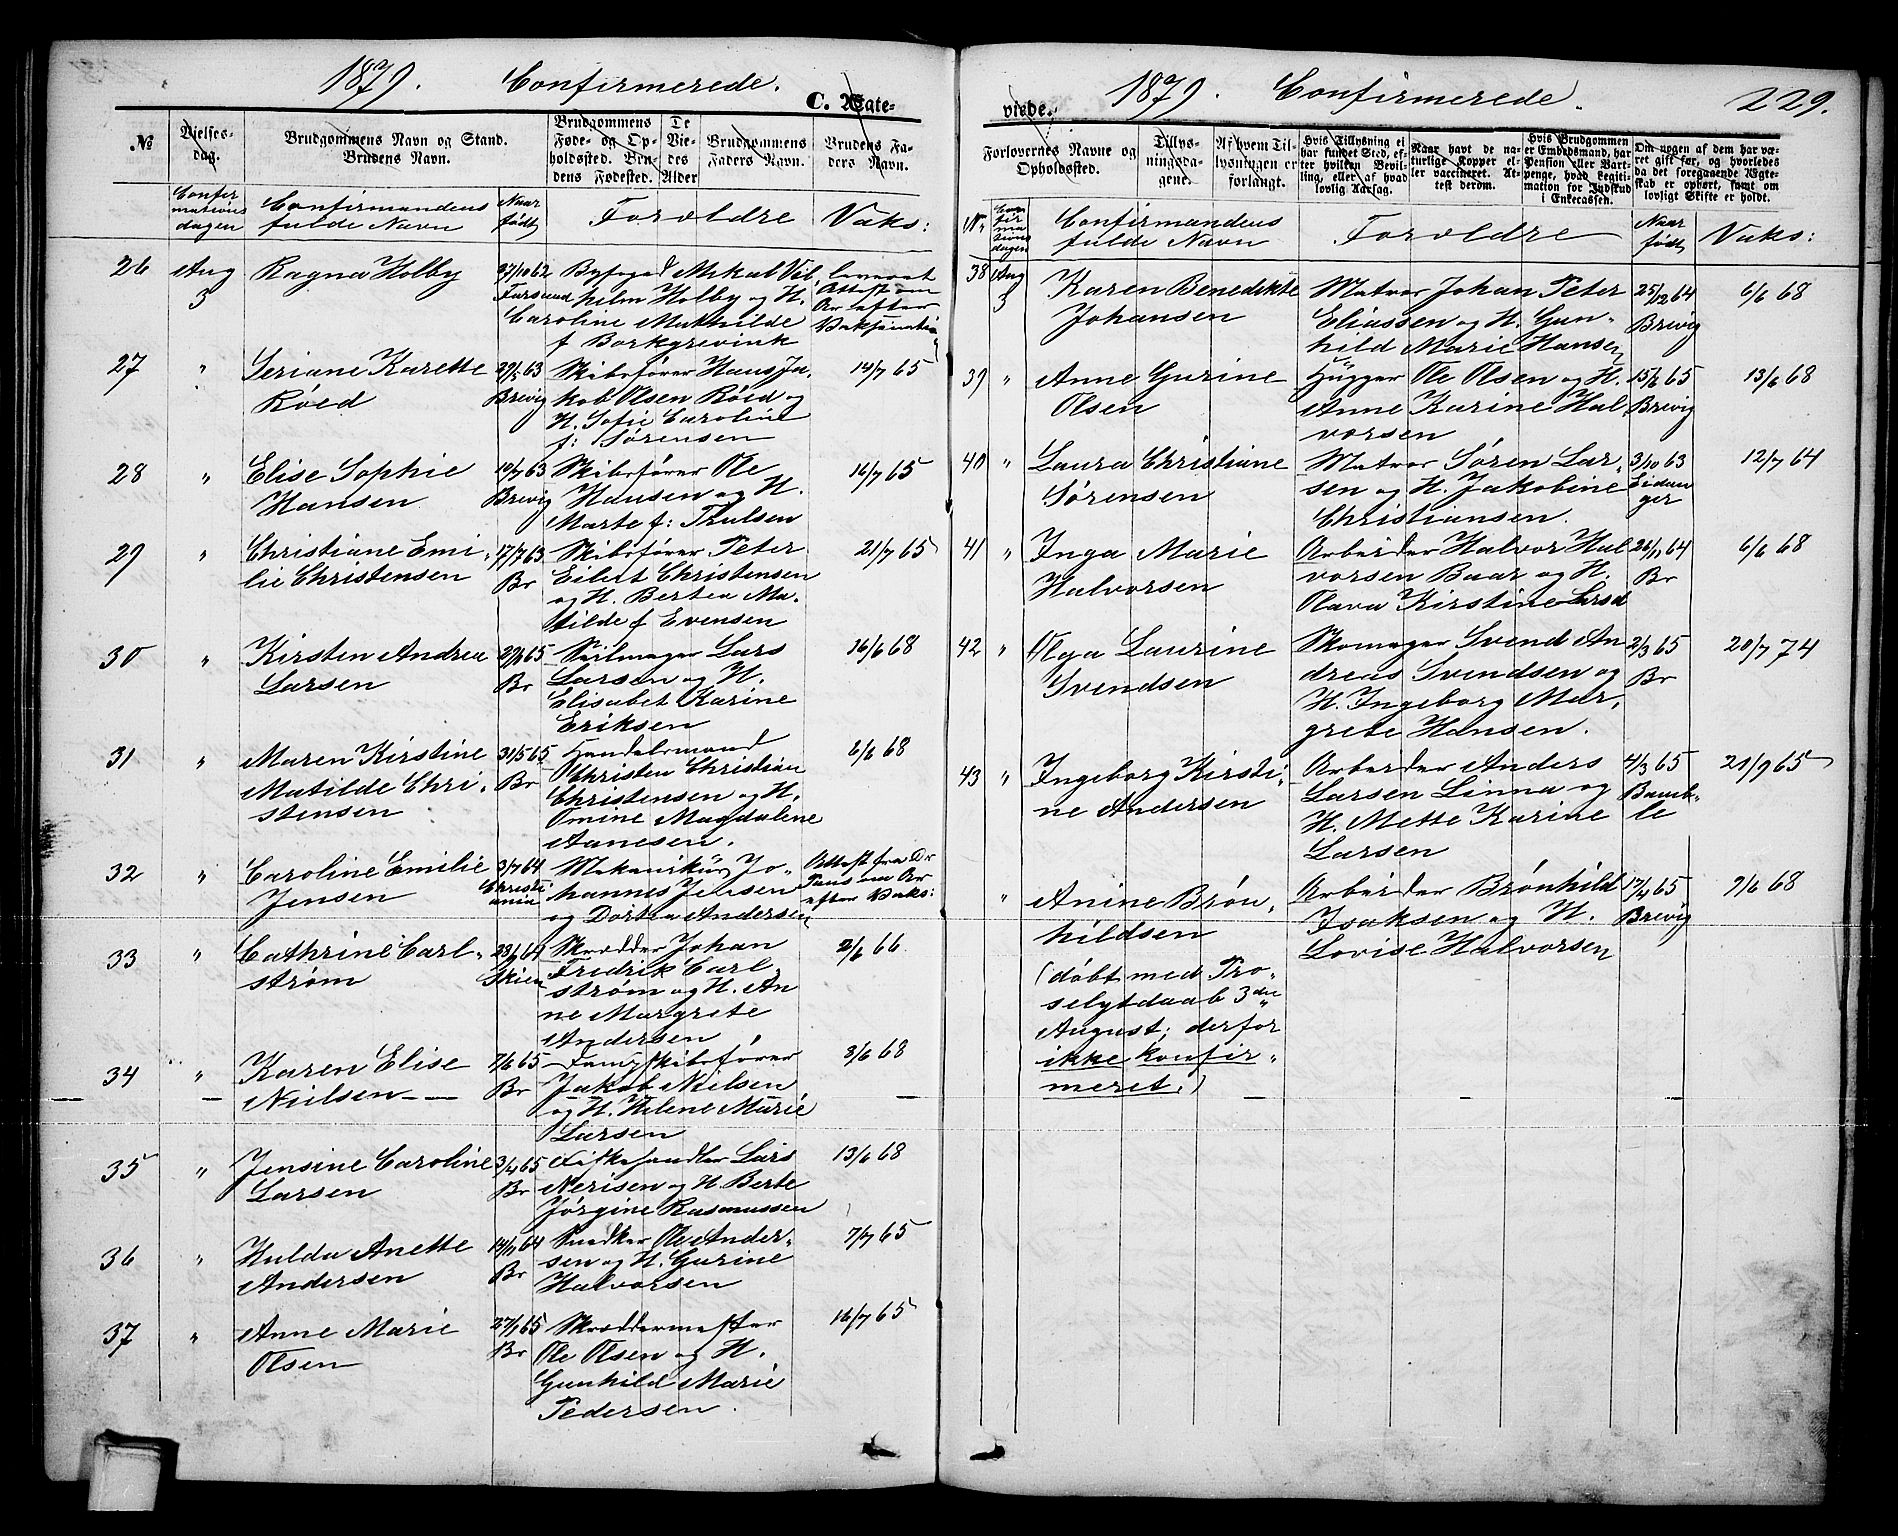 1879. Confirmerede. C. Ægte-
№
Vielses-
dag.
Brudgommens Navn og Stand.
Brudens Navn.
Brudgommens
Føde- og Op-
holdssted. Bru-
dens Fødested.
De
Vie-
des
Alder
Brudgommens
Faders Navn.
Brudens Fa-
ders Navn.
Confir
mations
dagen
Confirmandens
fulde Navn
Naar
født
Forældre
Vaks:
26 Aug
3
Ragna Holby
27/10 62
Farsund
Byfoged Mikal Vil,
helm Holby og H.
Caroline Mathilde
f Borkgrevink
leveret
Attest om
Ar efter
27 "
Seriane Karette
Röed
29/5 63
Brevig
Skibsfører Hans Ja,
kob Olsen Röed og
H. Sofie Caroline
f: Sørensen
14/7 65
28 "
Elise Sophie
Hansen
10/7 63
Brevig
Skibsfører Ole
Hansen og H.
Marte f: Trulsen
14/7 65
29 "
Christiane Emi,
lie Christensen
17/7 63
Br
Skibsfører Peter
Eilert Christensen
og H. Bertea Ma,
tilde f Evensen
21/7 65
30 "
Kirsten Andrea
Larsen
Br
Seilmager Lars
Larsen og H.
Elisabet Karine
Eriksen
16/6 68
31 "
Maren Kirstine
Matilde Chri,
stensen
31/5 65
Br
Handelsmand
Christen Christian
Christensen og H.
Omine Magdaline
Aanesen.
6/6 68
32 "
Caroline Emilie
Jensen
3/7 64
Christi
ania
Mekanikus Jo,
hannes Jensen
og Dortea Andersen
Attest fra Dr
om Ar
efter Vaks:
33 "
Cathrine Carl,
strøm
64
Skien
Skrædder Johan
Fredrik Carl
strøm og H. An
ne Margrete
Andersen
2/6 66
34 "
Karen Elise
Nielsen
7/6 65
Br
Jakob Nielsen
og H. Helene Marie
Larsen
3/6 68
35 "
Jensine Caroline
Larsen
3/4 65
Br
Fiskehandler Lars
Nerisen og H. Berte
Jørgine Rasmussen
13/6 68
36 "
Hulda Anette
Andersen
14/11 64
Br
Snedker Ole Ander,
sen og H. Gurine
Halvorsen
7/7 65
37 "
Anne Marie
Olsen
27/1 65
Br
Skræddermester
Ole Olsen og H.
Gunhild Marie
Pedersen.
16/7 65
viede. 1879. Confirmerede. 229.
Forlovernes Navne og
Opholdssted.
Tillys-
ningsda-
gene.
Af hvem Til-
lysningen er
forlangt.
Hvis Tillysning ei
har fundet Sted, ef-
ter hvilken Bevil-
ling, eller af hvad
lovlig Aarsag.
Naar havt de na-
turlige Kopper el-
ler vaccineret. At-
test derom.
Hvis Brudgommen
er Embedsmand, har
Pension eller Vart-
penge, hvad Legiti-
mation for Indskud
i Enkecassen.
Om nogen af dem har væ-
ret gift før, og hvorledes
da det foregaaende Ægte-
skab er ophørt, samt om
lovligt Skifte er holdt.
N.
Con
fir
ma
tions
dagen
Confirmandens
fulde Navn
Forældre
Naar
født
Vaks:
38 Aug
3
Karen Benedikte
Johansen
Matros Johan Peter
Eliassen og H. Gun,
hild Marie Hansen
25/12 64
Brevig
6/6 68
39 "
Anne Gurine
Olsen
Hugger Ole Olsen og H.
Anne Karine Hal,
vorsen
15/6 65
Brevig
13/6 68
40 "
Laura Christiane
Sørensen
Matros Søren Lar,
sen og H. Jakobine
Christiansen.
3/10 63
Eidan
ger
12/7 64
41 "
Inga Marie
Halvorsen
Arbeider Halvor Hal
vorsen Baar og H.
Olava Kirstine Larsd
26/1 64
Br
6/6 68
42 "
Olga Laurine
Svendsen
Skomager Svend An
dreas Svendsen og
H. Ingeborg Mar,
grete Hansen.
2/3 65
Br
20/7 74
43 "
Ingeborg Kirsti,
ne Andersen
Arbeider Anders
Larsen Linna og
H. Mette Karine
Larsen
4/3 65
Bamb,
le
21/9 65
"
Anine Brön,
hildsen
(döbt med Pro,
selytdaab 3die
August; derfor
ikke konfir,
meret.)
Arbeider Brönhild
Isaksen og H.
Lovise Halvorsen
17/4 65
Brevig
9/6 68